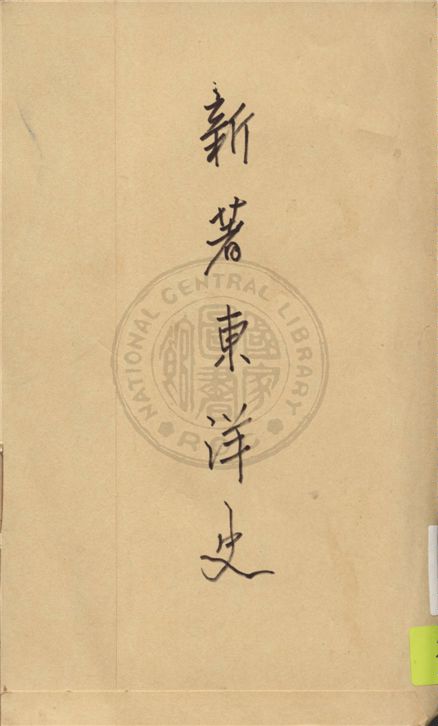 新著東洋史
NATIONAL CENTRAL LIBRARY
R.O.C.
國家圖書館